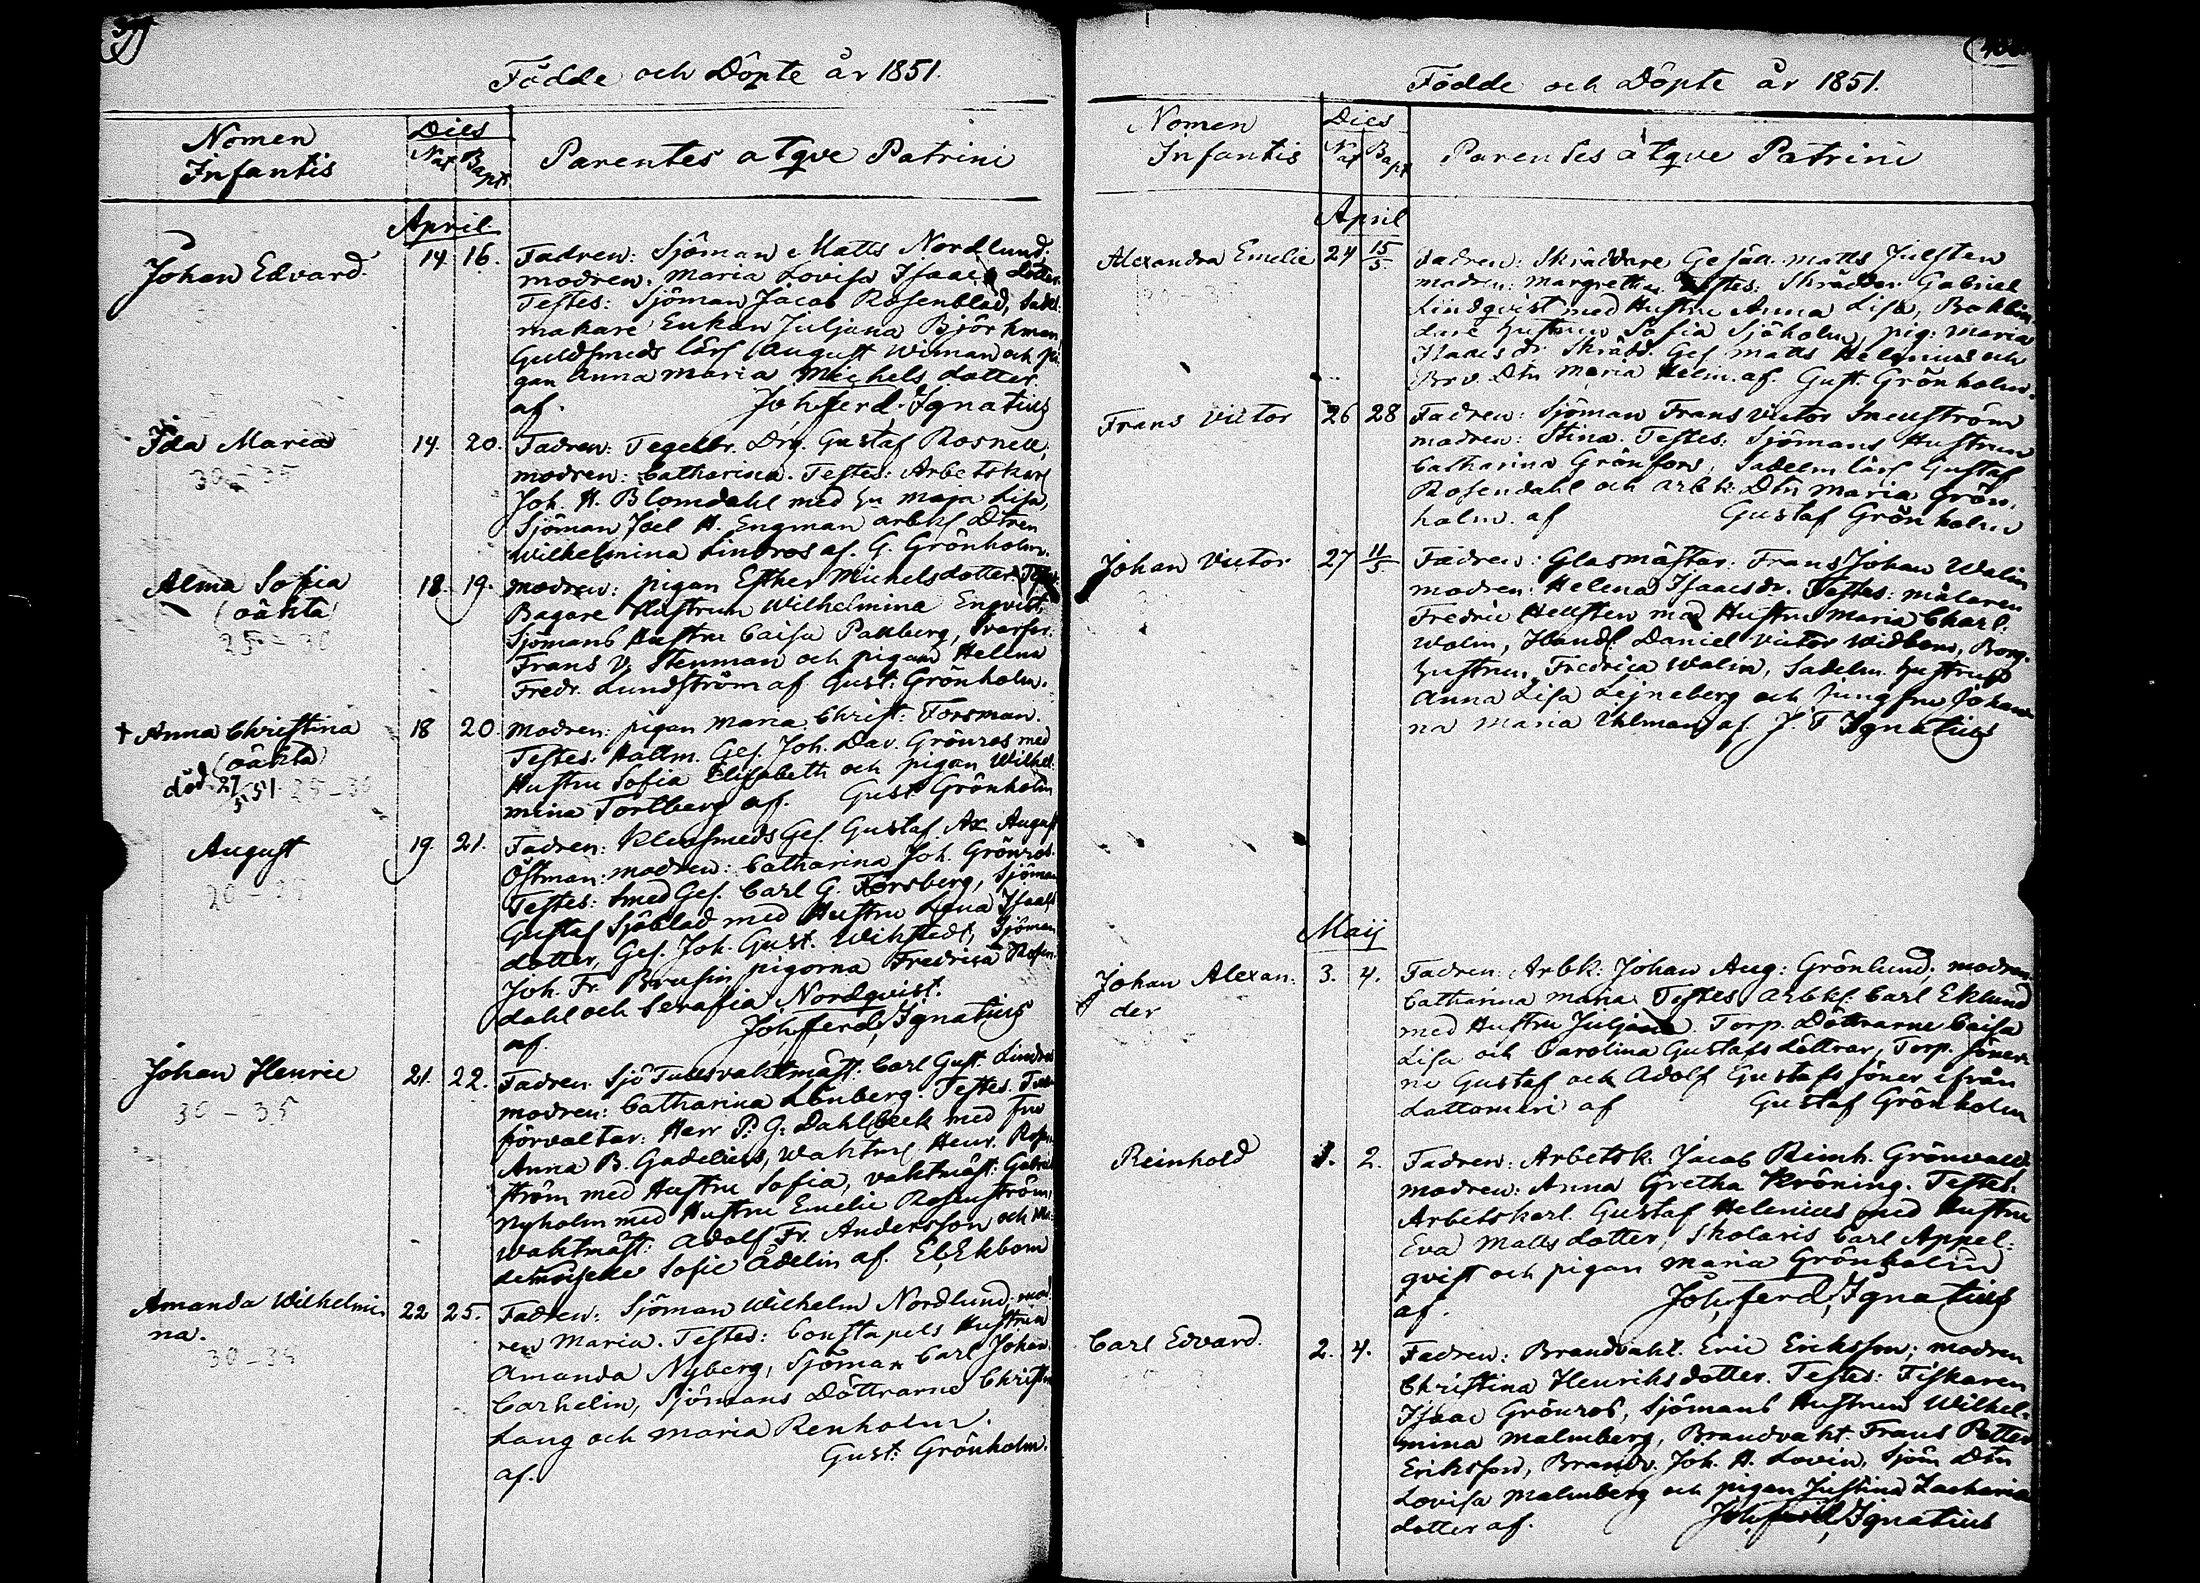 Födde och Döpte år 1851.
Nomen Infantis
Dies
Nat Bapt
Parentes atqve Patrini
April
Johan Edvard 14 16. Fadren: Sjöman Matts Nordlund;
modren: Maria Lovisa Isaacs dotter.
Testes: Sjöman Jacob Rosenblad, Sadel-
makare Enkan Juljana Björkman
Guldsmeds lärl August Wiman och pi-
gan Anna Maria Michels dotter
af. Joh. ferd. Ignatius
Ida Maria 14. 20. Fadren: Tegelbr. Drg. Gustaf Rosnell,
30-35
modren: Catharina. Testes: Arbetskarl
Joh. H. Blomdahl med hu Maja Lisa,
Sjöman Joel H. Engman arbk Dtren
Wilhelmina Lindros af. G. Grönholm.
Alma Sofia 18. 19. modren: pigan Esther Michelsdotter
(oäkta)
25-30
Bagare Hustrun Wilhelmina Enqvist,
Sjömans Hustru Caisa Pahlberg,
Frans V. Stenman och pigan Helena
Fredr. Lundström af Gust: Grönholm.
+ Anna Christina 18 20 Modren: pigan Maria Christ: Forsman.
(oäkta)
död 27/5 51. 25-30
Testes: Hattm. Ges. Joh. Dav. Grönros med
Hustru Sofia Elisabeth och pigan Wilhel-
mina Tortberg af. Gust Grönholm
August 19. 21. Fadren: Klensmeds Ges. Gustaf Ax August
Östman: modren: Catharina Joh. Grönros.
Testes: Smed Ges. Carl G. Forsberg, Sjöman
Gustaf Sjöblad med Hustru Lena Isaaks
dotter, Ges. Joh. Gust. Wikstedt, Sjöman
Joh. Fr. Brusin, pigorna Fredrica Rosen-
dahl och Serafia Nordqvist.
af. Joh. ferd. Ignatius
Johan Henric 21. 22. Fadren Sjö Tullsvaktmäst. Carl Gust. Lindros
30-35
modren: Catharina Lönberg. Testes. Tull-
förvaltar: Herr P: G: Dahlbeck med Fru
Anna B. Gadelius, Waktm Henr. Rosen-
ström med Hustru Sofia, vaktmäst: Gabriel
Nyholm med Hustru Emelie Rosenström,
waktmäst: Adolf Fr. Andersson och Ma-
demoiselle Sofie Ådelin af. El. Ekbom
Amanda Wilhelmi- 22 25. Fadren: Sjöman Wilhelm Nordlund: mod-
na.
ren Maria. Testes: Constapels Hustrun
Amanda Nyberg, Sjöman Carl Johan
Carhelin, Sjömans Döttrarne Christin
Lang och Maria Renholm.
af. Gust: Grönholm.
Födde och Döpte år 1851.
Nomen Infantis
Dies
Nat Bapt
Parentes atqve Patrini
April
Alexandra Emelie 24 15/5 Fadren: Skräddare Gesäll Matts Julsten
modren: Margretha. Testes: Skrädder Gabriel
Lindqvist med Hustru Anna Lisa, Bokbin-
dare hustrun Sofia Sjöholm, pig: Maria
Isaacs dr Skrädd. Ges Matts Helenius och
Brv. Dtn Maria Helin. af. Gust. Grönholm.
Frans Victor 26 28 Fadren: Sjöman Frans Victor Smedström
modren: Stina. Testes: Sjömans Hustrun
Catharina Grönfors, Sadelm lärl Gustaf
Rosendahl och arbk: Dtn Maria Grön-
holm. af Gustaf Grönholm
Johan Victor 27 11/5 Fadren: Glasmästar: Frans Johan Walin
modren: Helena Isaacsdr. Testes: målaren
Fredric Hellsten med Hustru Maria Charl.
Walin, Handl. Daniel Victor Widbom, Borg.
hustrun Fredrica Walin, Sadelm. hustrun
Anna Lisa Lejneberg och Jungfru Johan-
na Maria Uhlman af. J. F Ignatius
Maij
Johan Alexan- 3. 4. Fadren: Arbk: Johan Aug: Grönlund; modren
der
Catharina Maria. Testes, Arbk: Carl Eklund
med Hustru Juljana. Torp. Döttrarne Caisa
Lisa och Carolina Gustafs döttrar, Torp. Söner-
ne Gustaf och Adolf Gustafs Söner ifrån
Lattomeri af Gustaf Grönholm
Reinhold 1. 2. Fadren: Arbetsk: Jacob Reinh. Grönvall
modren: Anna Gretha Kröning. Testes:
Arbetskarl Gustaf Helenius med Hustru
Eva Matts dotter, Skolaris Carl Appel-
qvist och pigan Maria Grönholm
af. Joh. ferd. Ignatius
Carl Edvard. 2. 4. Fadren: Brandvakt. Eric Eriksson; modren
Christina Henriks dotter. Testes: Fiskaren
Isaac Grönros, Sjömans Hustrun Wilhel-
mina Malmberg, Brandvakt. Frans Petter
Eriksson, Brandv. Joh. H. Lovin, Sjöm Dtn
Lovisa Malmberg och pigan Justina Zacharia
dotter af. Joh. ferd. Ignatius